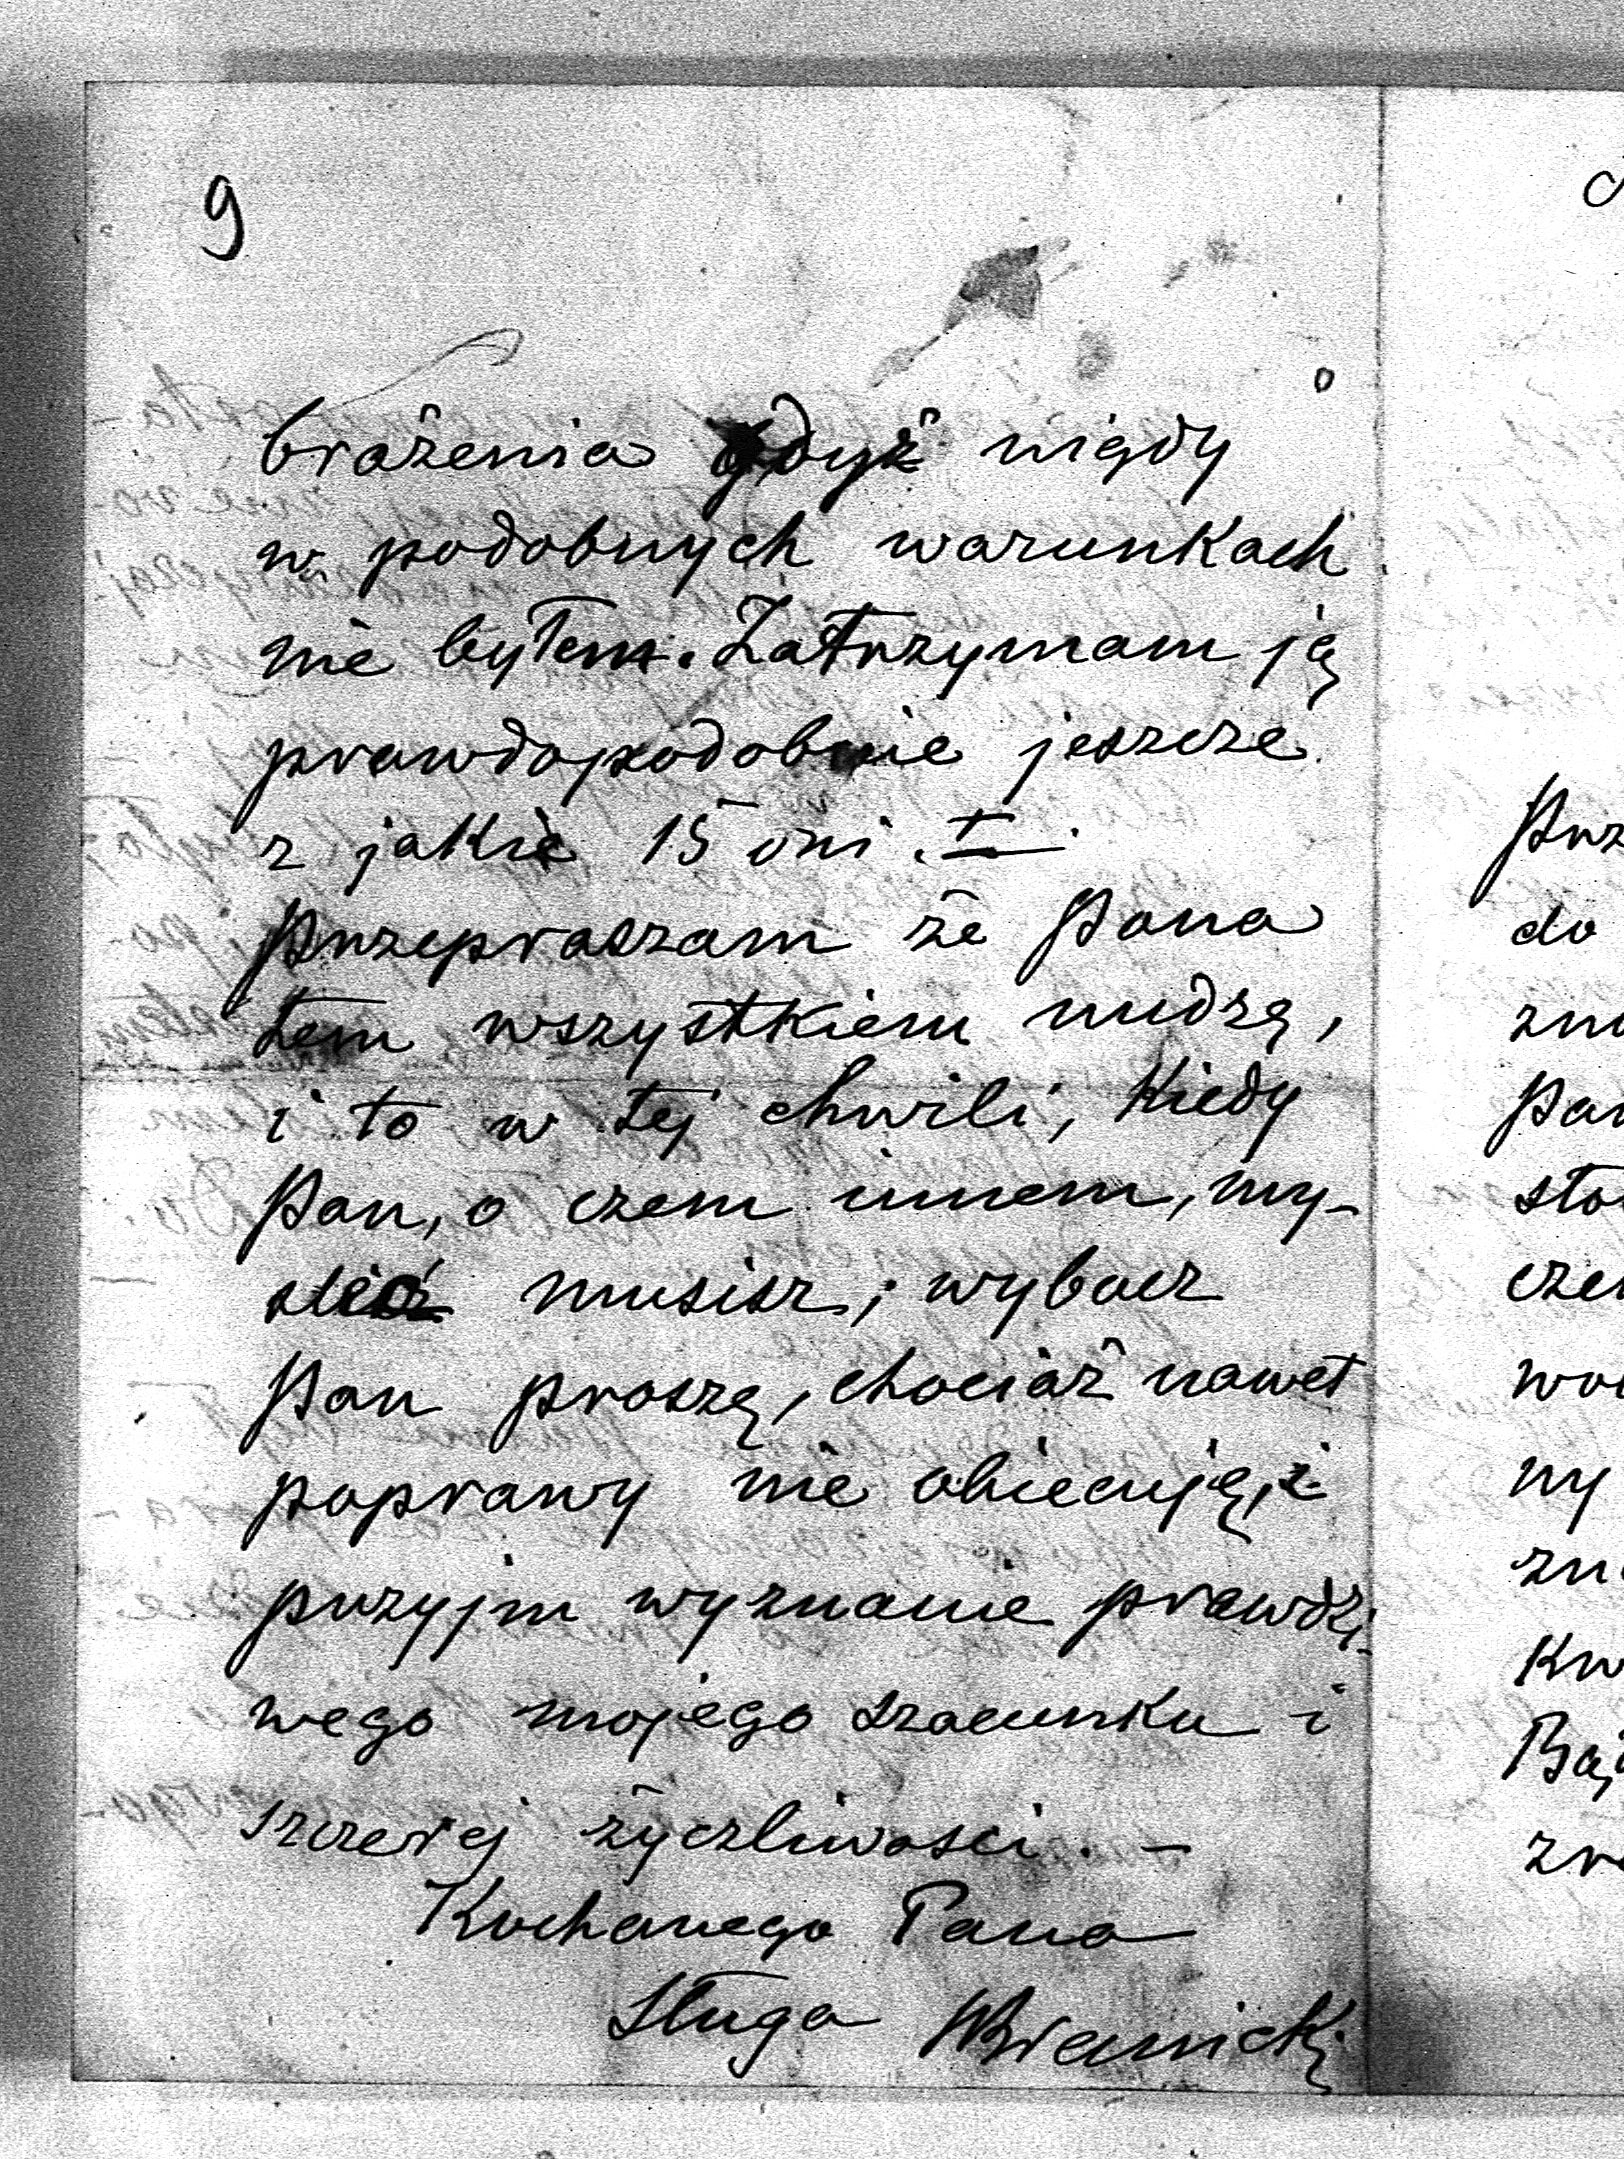 9
brażenia gdyż nigdy
w podobnych warunkach
nie byłem. Zatrzymam ją
prawdopodobnie jeszcze
z jakie 15 dni.
Przepraszam że Pana
tem wszystkiem nudzę,
i to w tej chwili, kiedy
Pan, o czem innem, my-
śleć musisz; wybacz
Pan proszę, chociaż nawet
poprawy nie obiecuję, i
przyjm wyznanie prawdzi-
wego mojego szacunku i
szczerej życzliwości. -
Kochanego Pana
Sługa WBranicki
Prz
do
zna
Pan
sto
czem
wod
ny
zna
Kw
Baj
zra